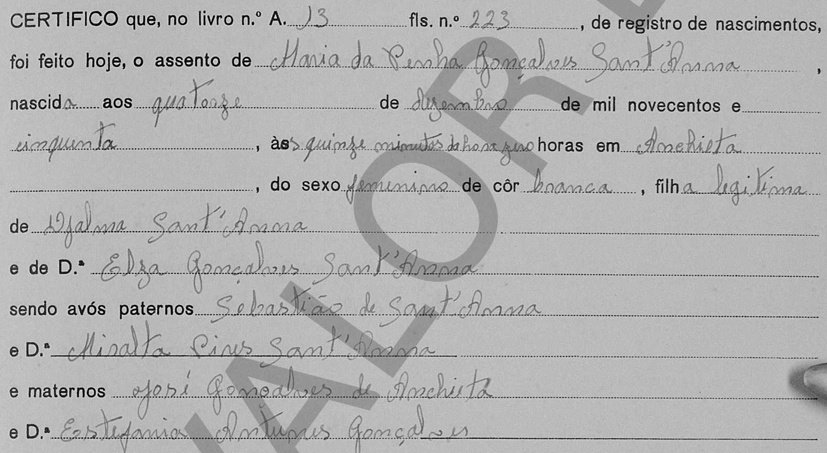 CERTIFICO que, no livro n.º A. 13 fls. n.º 223, de registro de nascimentos,
foi feito hoje, o assento de Maria da Penha Gonçalves Sant'Anna,
nascida aos quatorze de dezembro de mil novecentos e
cinquenta, às quinze minutos da hora zero horas em Anchieta
, do sexo femenino de côr branca, filha legitima
de Djalma Sant'Anna
e de D.ª Elza Gonçalves Sant'Anna
sendo avós paternos Sebastião de Sant'Anna
e D.ª Miralta Pires Sant'Anna
e maternos José Gonçalves de Anchieta
e D.ª Estefania Antunes Gonçalves
VALOR